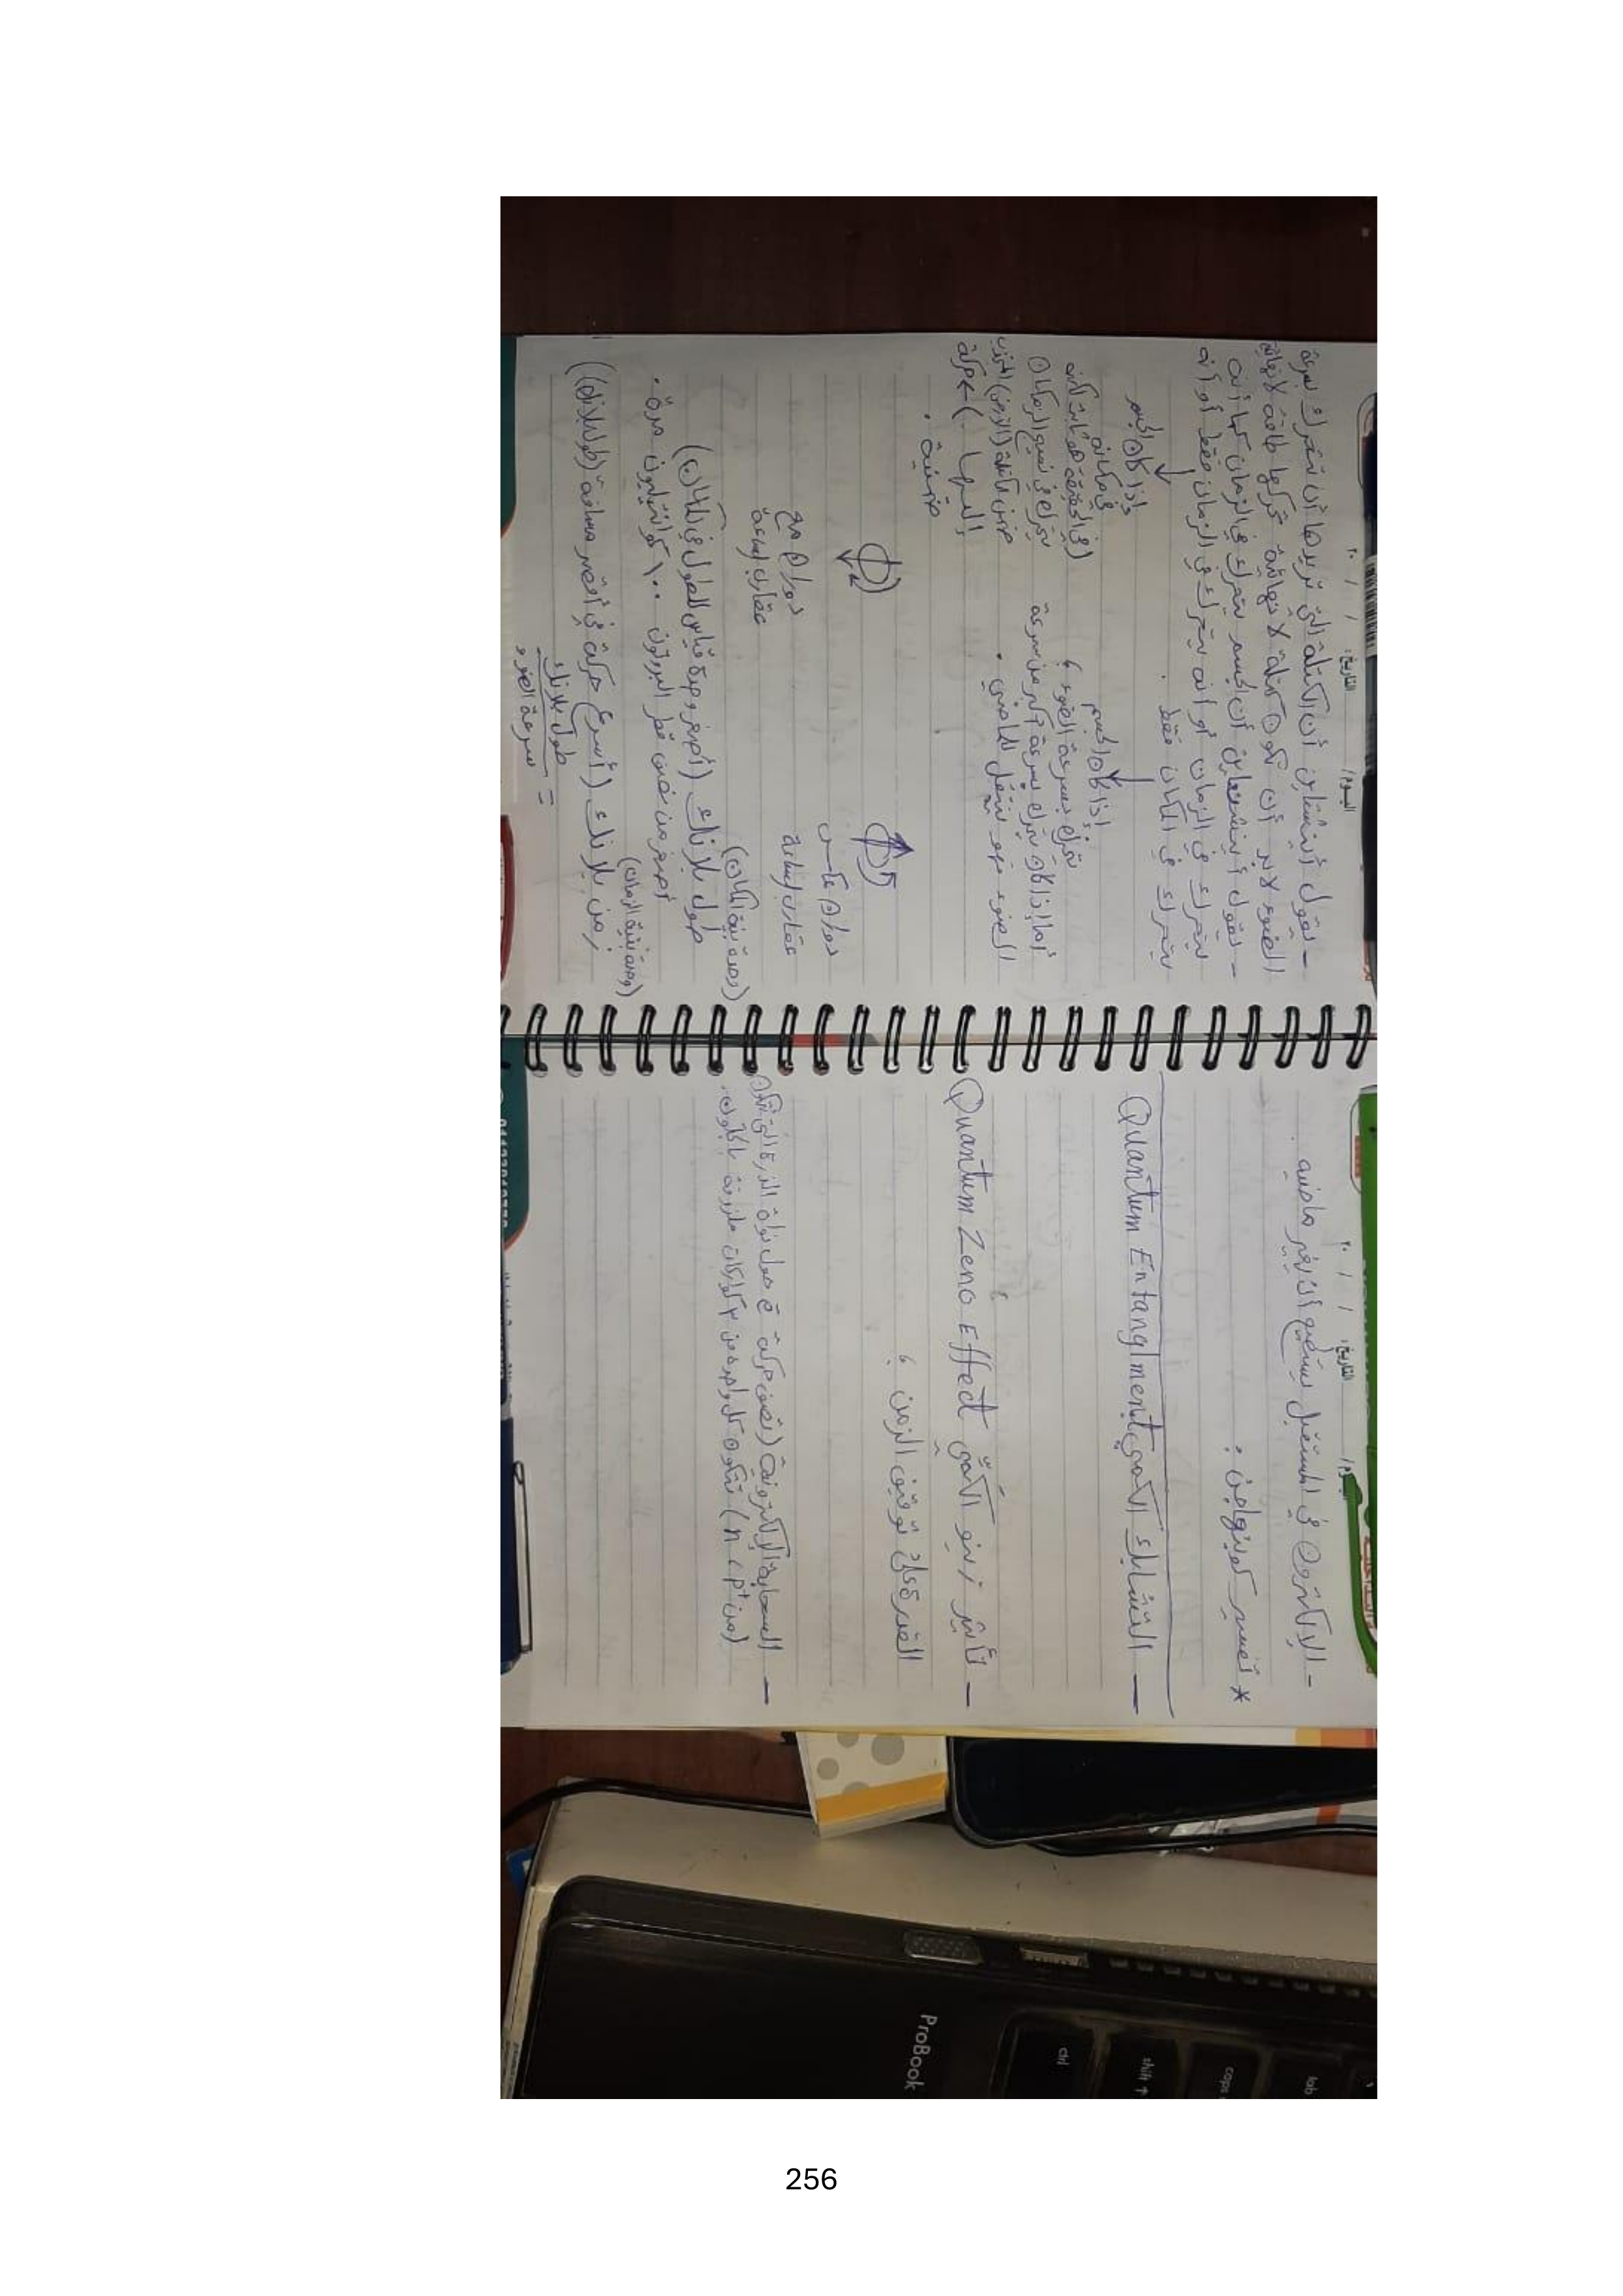 اليوم: التاريخ: / / ٢٠
- الإلكترون في المستقبل يستطيع أن يغير ماضيه.
* تفسير كوبنهاجن:
— التشابك الكمي Quantum Entanglment
— تأثير زينو الكمّي Quantum Zeno Effect
القدرة على توقيف الزمن
— السحابة الإلكترونية (تصف حركة e حول نواة الذرة التي تتكون
(من p+ ، n) تتكون كل واحدة من ٣ كواركات ملزوقة بالجلون.
اليوم: التاريخ: / / ٢٠
- تقول أينشتاين أن الكتلة التي تريدها أن تتحرك بسرعة
الضوء لابد أن تكون كتلة لا نهائية تحركها طاقة لا نهائية
- تقول أينشتاين أن الجسم يتحرك في الزمان كما أنه
يتحرك في الزمان أو أنه يتحرك في الزمان فقط أو أنه
يتحرك في المكان فقط.
إذا كان الجسم
يتحرك بسرعة الضوء ،
أما إذا كان يتحرك بسرعة أكبر من سرعة
الضوء فهو ينتقل للماضي.
إذا كان الجسم
في مكانه
(في الحقيقة هو ثابت لكنه
يتحرك في نسيج الزمكان
ضمن كتلة (الأرض) المنجذب
إليها .) ← حركة
ضمنية.
دوران عكس
عقارب الساعة
دوران مع
عقارب الساعة
(وحدة بنية المكان)
طول بلانك (أصغر وحدة قياس للطول في المكان)
أصغر من نصف قطر البروتون ١٠٠ كوانتيليون مرة.
(وحدة بنية الزمان)
زمن بلانك (أسرع حركة في أقصر مسافة (طول بلانك))
= طول بلانك
سرعة الضوء
ProBook
ctrl
shift ↑
caps
tab
256